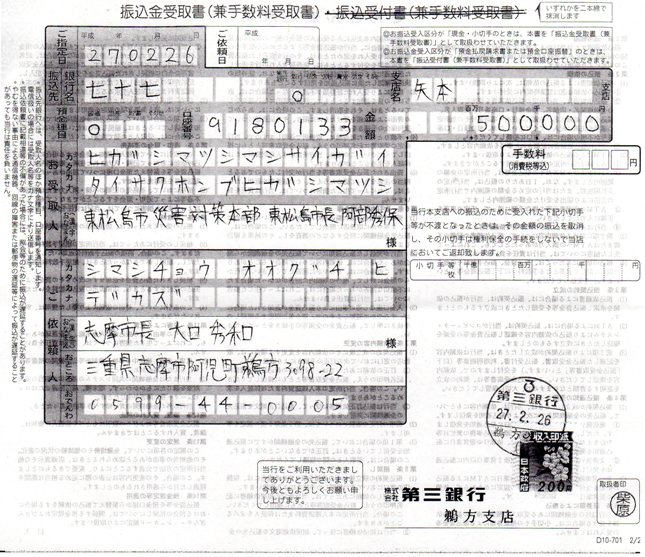 振込金受取書（兼手数料受取書）・振込受付書（兼手数料受取書）
いずれかを二本線で
抹消します
ご指定日
平成 年 月 日
270226
ご依頼日
平成
年 月 日
◎お振込受入区分が「現金・小切手のときは、本書を「振込金受取書（兼
手数料受取書）」として取扱わせていただきます。
◎お振込受入区分が預金払戻請求書または預金口座振替」のときは、
本書を「振込受付書（兼手数料受取書）」として取扱わせていただきます。
振込先
銀行名
七十七
0
支店名
矢本
支店
預金種目
0
口座番号
9180133
金額
百万 千 円
500000
お受取人
カタカナ
ヒガシマツシマシサイガイ
タイサクホンブヒガシマツシ
東松島市災害対策本部 東松島市長 阿部秀保
様
手数料
(消費税等込)
円
当行本支店への振込のために受入れた下記小切手
等が不渡となったときは、その金額の振込を取消
し、その小切手は権利保全の手続をしないで当店
においてご返却致します。
小切手等
枚
千億 百万 千 円
ご依頼人
カタカナ
シマシチョウ オオグチ ヒ
デカズ
志摩市長 大口秀和
様
おところ
三重県志摩市阿児町鵜方3098-22
おでんわ
0599-44-0005
3
第三銀行
27.2.26
鵜方
収入印紙
日本政府
200円
当行をご利用いただきまし
てありがとうございます。
今後ともよろしくお願い申
し上げます。
株式会社 第三銀行
鵜方支店
取扱者印
柴原
D10-701 2/2